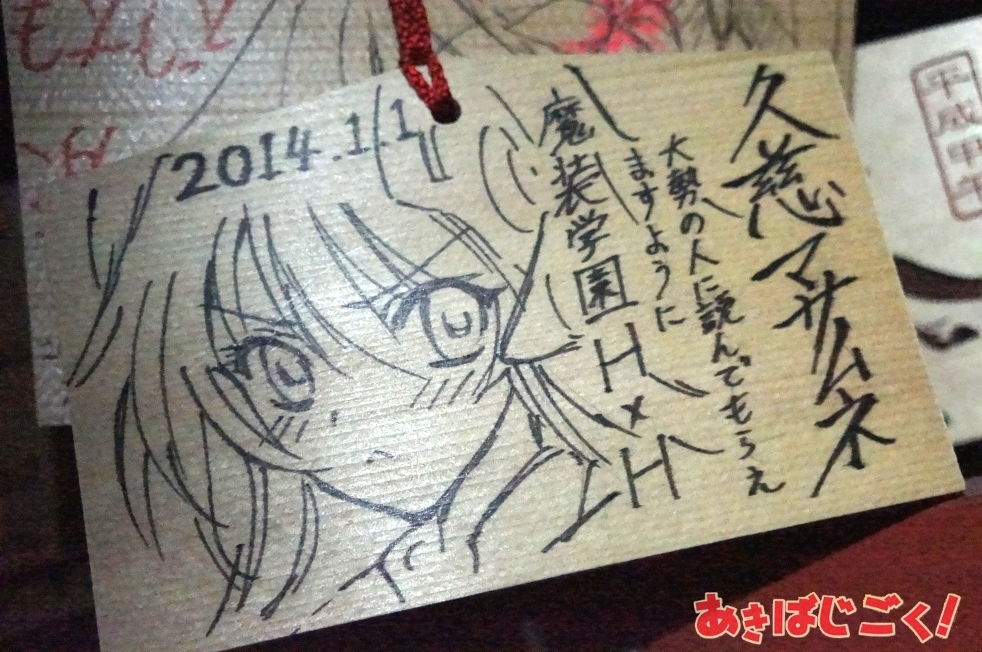 久慈マサムネ
大勢の人に読んでもらえ
ますように
魔装学園H×H
2014.1.1
平成甲午
あきばじごく!